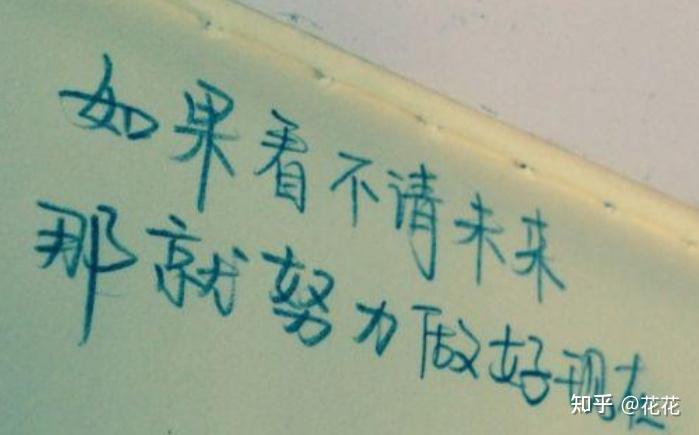 如果看不请未来
那就努力做好现在
知乎 @花花